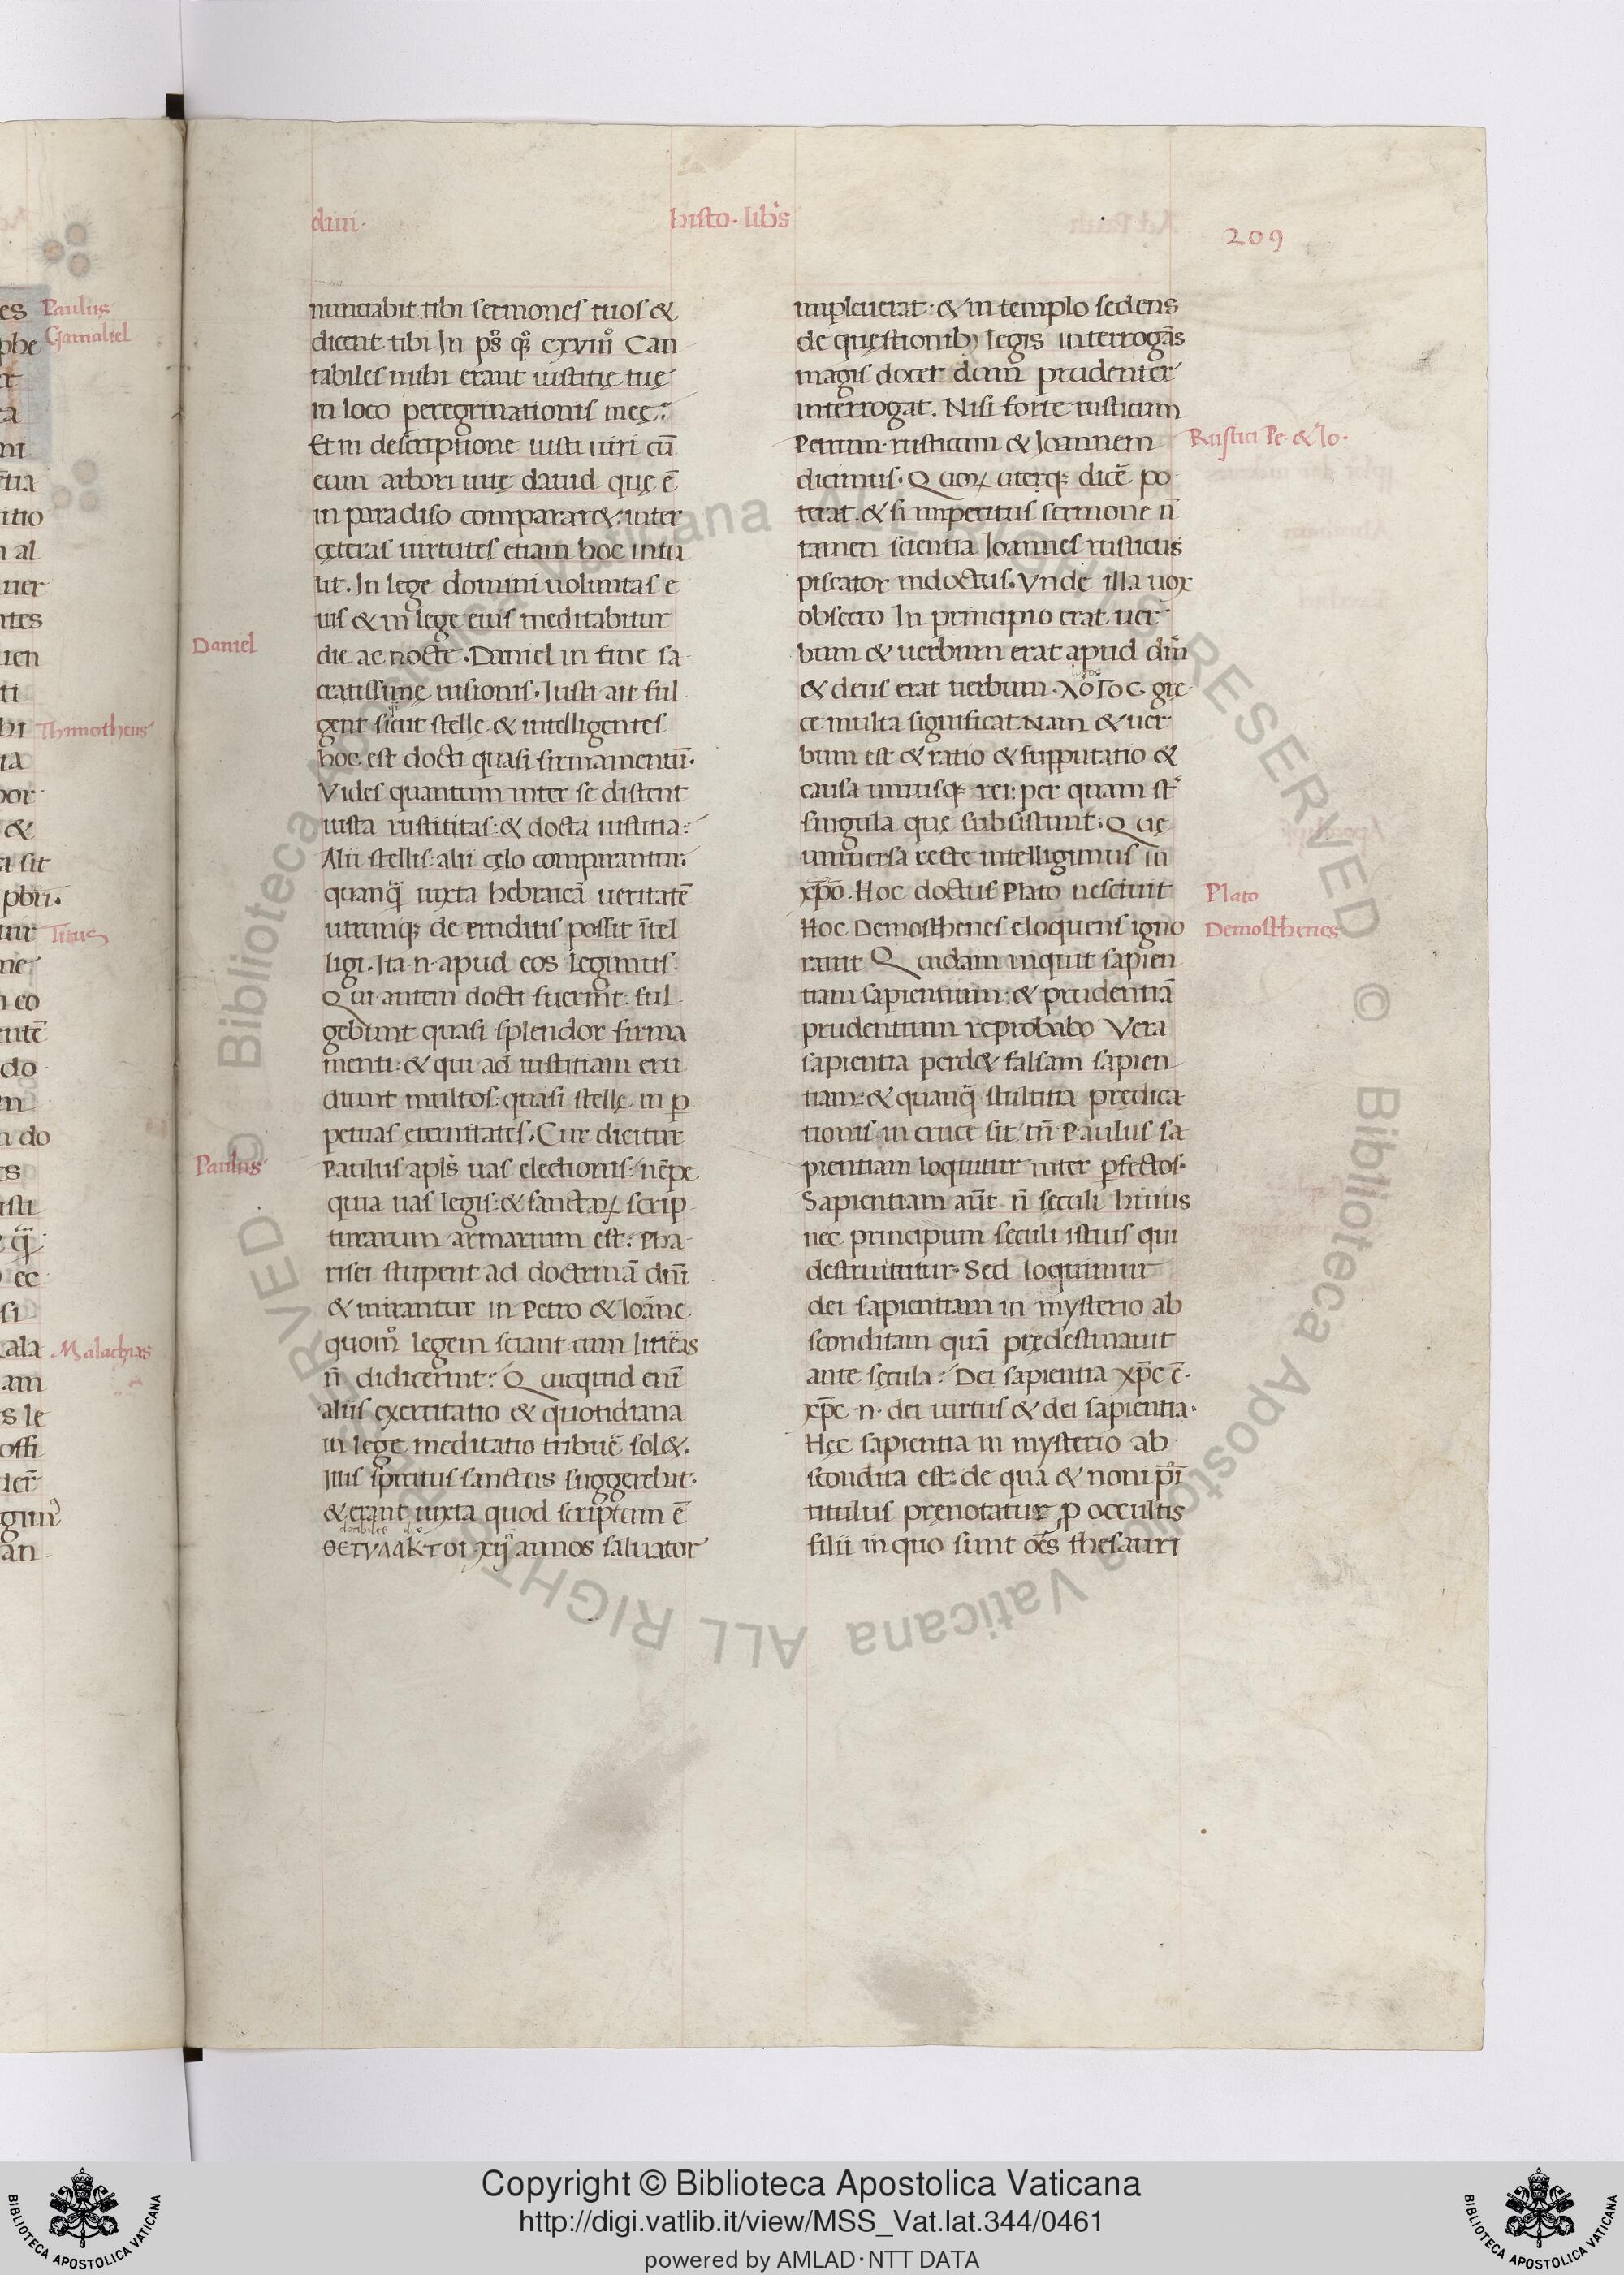 diui·
histo· lib's
209
es
Paulus
phe
Gamaliel
Thimotheus
Titus
Malachias
nunciabit tibi sermones tuos &
dicent tibi In ps̄ q; cxviiı̊ Can
tabiles mihi erant iustitię tuę
in loco peregrinationis meę:
Et in descriptione iusti uiri cū
eum arbori uitę dauid quę ē
in paradiso compararet inter
çeteras uirtutes etiam hoc intu
lit. In lege domini uoluntas e
ius & in lege eius meditabitur
Daniel
die ac nocte. Daniel in fine sa
cratissimę uisionis. Iusti ait ful
gent sicut stellę & intelligentes
hoc est docti quasi firmamentū.
Vides quantum inter se distent
iusta rustititas: & docta iustitia:
Alii stellis: alii cęlo comparantur.
quanq̄ iuxta hebraicā ueritatē
utrunq; de eruditis possit ītel
ligi. Ita·n·apud eos legimus
Qui autem docti fuerīt: ful
gebunt quasi splendor firma
menti: & qui ad iustitiam eru
diunt multos: quasi stellę in ꝑ
petuas eternitates. Cur dicitur
Paulus
Paulus apl's uas electionis: nēpe
quia uas legis: & sanctaꝝ scrip
turarum armarium est: Pha
risei stupent ad doctrinā dn̄i
& mirantur in Petro & Ioāne.
quom̊ legem sciant cum litteras
n̄ didicerint: Quicquid enī
aliis exercitatio & quotidiana
in lege meditatio tribuē solet.
Illis spiritus sanctus suggerebat.
& erant iuxta quod scriptum ē
ΘΕΤΥΛΑΚΤΟΙ xij annos saluator
impleuerat· & in templo sedens
de quęstionib; legis interrogās
magis docet dum prudenter
interrogat. Nisi forte rusticum
Petrum· rusticum & Ioannem
Rustici Pe· & Io·
dicimus. Quoꝝ uterq; dicē po
terat. & si imperitus sermone n̄
tamen scientia Ioannes rusticus
piscator indoctus. Vnde illa uox
obsecro In principio erat uer
bum & uerbum erat apud dm̄
& deus erat uerbum. λόΓοc grę
ce multa significat Nam & uer
bum est & ratio & supputatio &
causa uniusq; rei: per quam st̄
singula quę subsistunt. Quę
uniuersa recte intelligimus in
xp̄o. Hoc doctus Plato nesciuit
Plato
Hoc Demosthenes eloquens igno
Demosthenes
rauit Quidam inquit sapien
tiam sapientium: & prudentiā
prudentum reprobabo Vera
sapientia perdet falsam sapien
tiam: & quanq̄ stultitia prędica
tionis in cruce sit tn̄ Paulus sa
pientiam loquitur inter ꝑfectos.
Sapientiam aūt n̄ sęculi huius
nec principum sęculi istius qui
destruuntur. Sed loquimur
dei sapientiam in mysterio ab
sconditam quā prędestinauit
ante sęcula: Dei sapientia xp̄c ē.
xp̄c·n· dei uirtus & dei sapientia.
Hęc sapientia in mysterio ab
scondita est: de qua & noni pˢī
titulus prenotatur ꝑ occultis
filii in quo sunt oēs thesauri
Copyright © Biblioteca Apostolica Vaticana
http://digi.vatlib.it/view/MSS_Vat.lat.344/0461
powered by AMLAD·NTT DATA
BIBLIOTECA APOSTOLICA VATICANA
BIBLIOTECA APOSTOLICA VATICANA